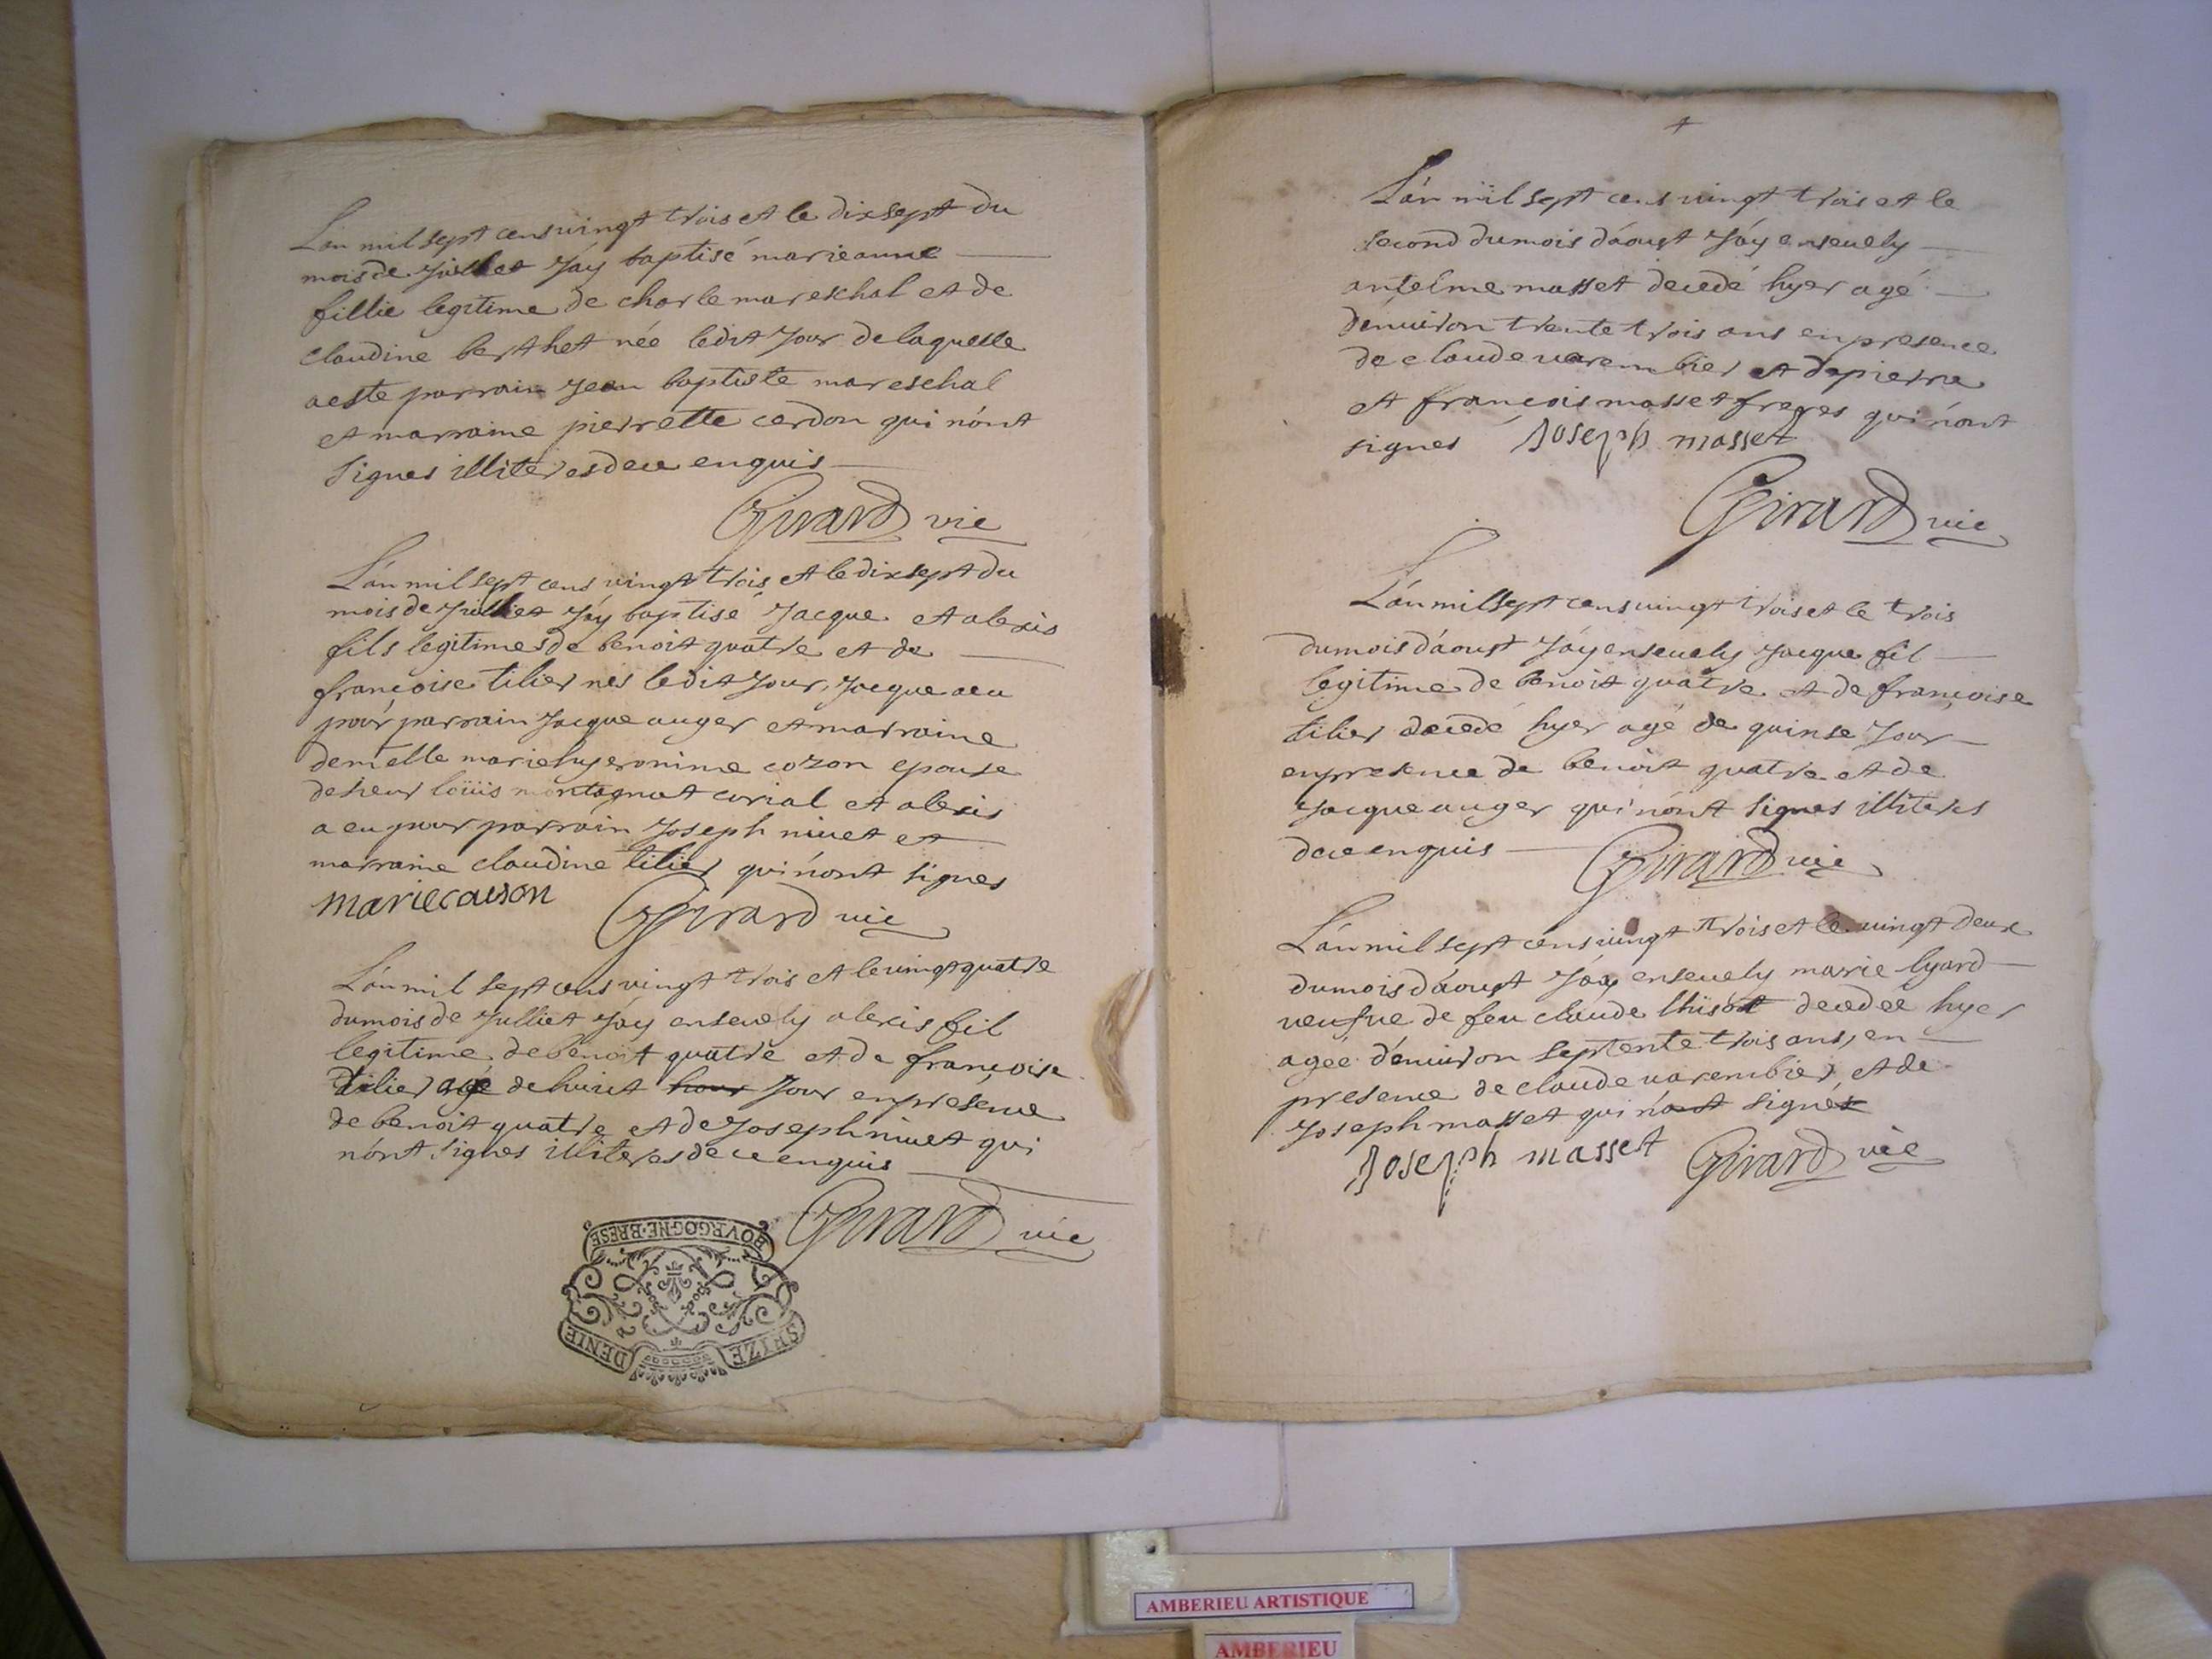 L'an mil sept cens vingt trois et le dixsept du
mois de Juillet J'ay baptisé marieanne
fillie legitime de charle mareschal et de
claudine berthet née ledit Jour de laquelle
a este parrain Jean baptiste mareschal
et marraine pierrette cerdon qui n'ont
signes illiteres de ce enquis
Girard vic
L'an mil sept cens vingt trois et le dixsept du
mois de Juilliet J'ay baptisé Jacque et alexis
fils legitimes de benoit quatre et de
françoise tilier nés ledit Jour, Jacque a eu
pour parrain Jacque auger et marraine
demelle marie hyeronime cozon epouse
de sieur loüis montagnat curial et alexis
a eu pour parrain Joseph nivet et
marraine claudine tilier qui n'ont signes
marie causon
Girard vic
L'an mil sept cens vingt trois et le vingt quatre
du mois de Julliet J'ay ensevely alexis fil
legitime de benoit quatre et de françoise
tilier agé de huict hour Jour en presence
de benoit quatre et de Joseph nivet qui
n'ont signes illiteres de ce enquis
Girard vic
BOVRGOGNE·BRESE
SEIZE DENIE
L'an mil sept cens vingt trois et le
second du mois d'aoust J'ay ensevely
antelme masset decedé hyer agé
d'environ trente trois ans en presence
de claude varembier et de pierre
et francois masset freres qui n'ont
signes Joseph masset
Girard vic
L'an mil sept cens vingt trois et le trois
du mois d'aoust J'ay ensevely Jacque fil
legitime de benoit quatre et de françoise
tilier decedé hyer agé de quinse Jour
en presence de benoit quatre et de
Jacque auger qui n'ont signes illiteres
de ce enquis Girard vic
L'an mil sept cens vingt trois et le vingt deux
du mois d'aoust J'ay ensevely marie lyard
veufve de feu claude decedee hyer
agée d'environ septente trois ans, en
presence de claude varembier et de
Joseph masset qui n'ont signes
Joseph masset Girard vic
AMBERIEU ARTISTIQUE
AMBERIEU